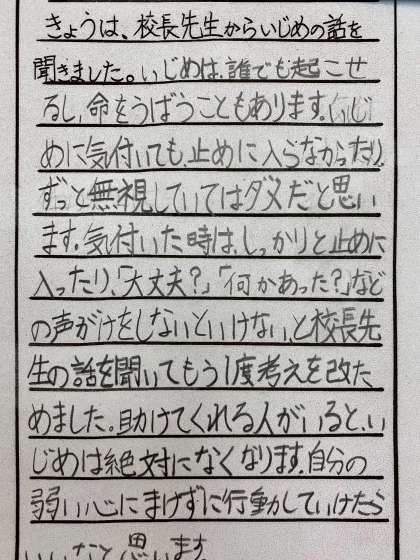 きょうは、校長先生からいじめの話を
聞きました。いじめは、誰でも起こせ
るし、命をうばうこともあります。いじ
めに気付いても、止めに入らなかったり、
ずっと無視していてはダメだと思い
ます。気付いた時は、しっかりと止めに
入ったり、「大丈夫？」「何かあった？」など
の声がけをしないといけない、と校長先
生の話を聞いてもう1度考えを改た
めました。助けてくれる人がいると、い
じめは絶対になくなります。自分の
弱い心にまけずに行動かしていけたら
いいなと思います